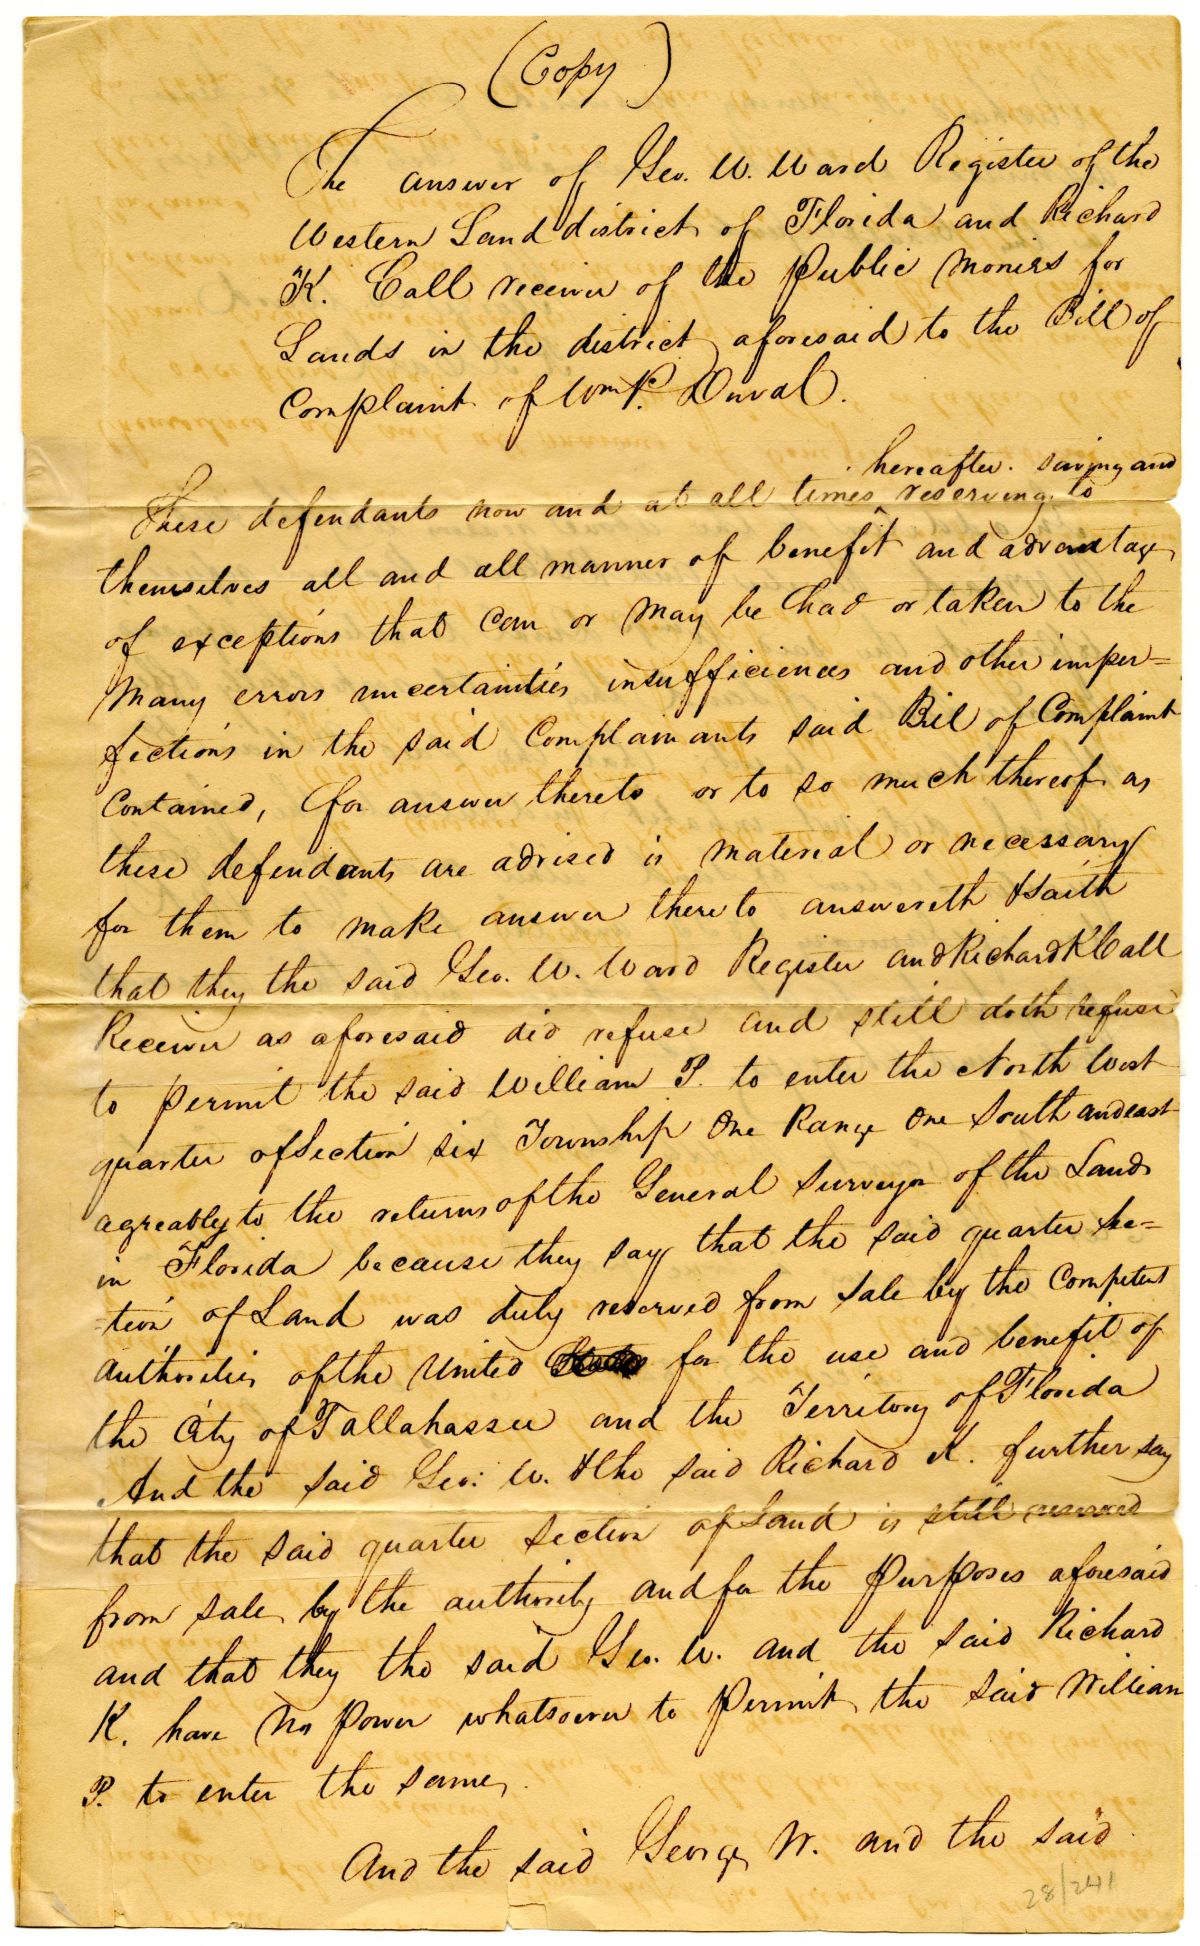 (Copy)
The answer of Geo. W. Ward Register of the
Western Land district of Florida and Richard
K. Call receiver of the Public Moniers for
Lands in the district aforesaid to the Bill of
Complaint of Wm P. Duval.
hereafter. saving and
These defendants now and at all times ^ reserving to
themselves all and all manner of benefit and advantage
of exceptions that can or may be had or taken to the
Many errors uncertainties insufficiences and other imper=
fections in the said Complainants said Bill of Complaint
Contained, for answer thereto or to so much thereof as
these defendants are advised is material or necessary
for them to make answer thereto answereth & saith
that they the said Geo. W. Ward Register and Richard K Call
Receiver as aforesaid did refuse and still doth refuse
to permit the said William P. to enter the North West
quarter of Section six Township One Range One South and east
agreably to the returns of the General Surveyor of the Lands
in Florida because they say that the said quarter Se=
=tion of Land was duly reserved from sale by the Competent
authorities of the United States for the use and benefit of
the City of Tallahassee and the Territory of Florida
And the said Geo: W. & the said Richard K. further say
that the said quarter Section of Land is still reserved
from sale by the authority and for the Purposes aforesaid
and that they the said Geo. W. and the said Richard
K. have no power whatsoever to permit the said William
P. to enter the same.
And the said George W. and the said
28/241